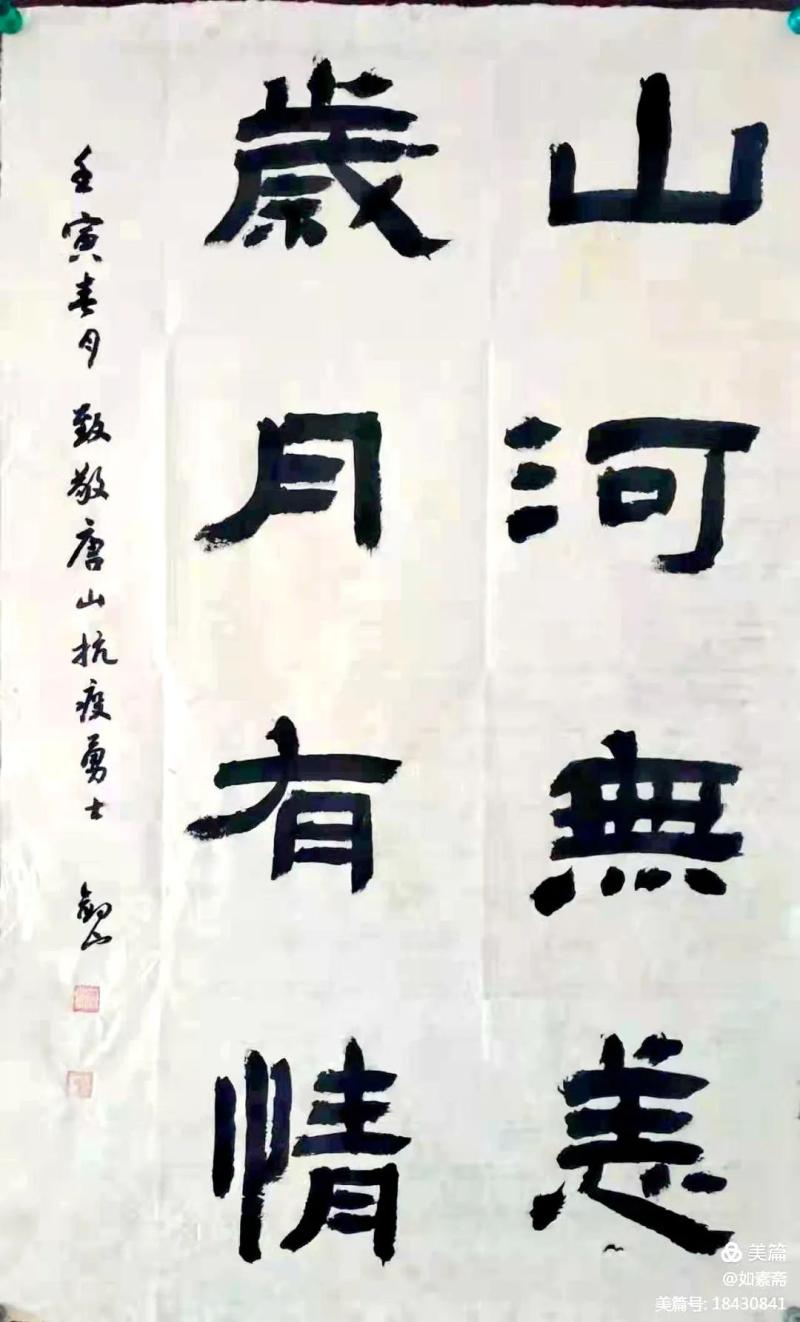 山河無恙
歲月有情
壬寅春月 致敬唐山抗疫勇士
美篇
@如素斋
美篇号: 18430841